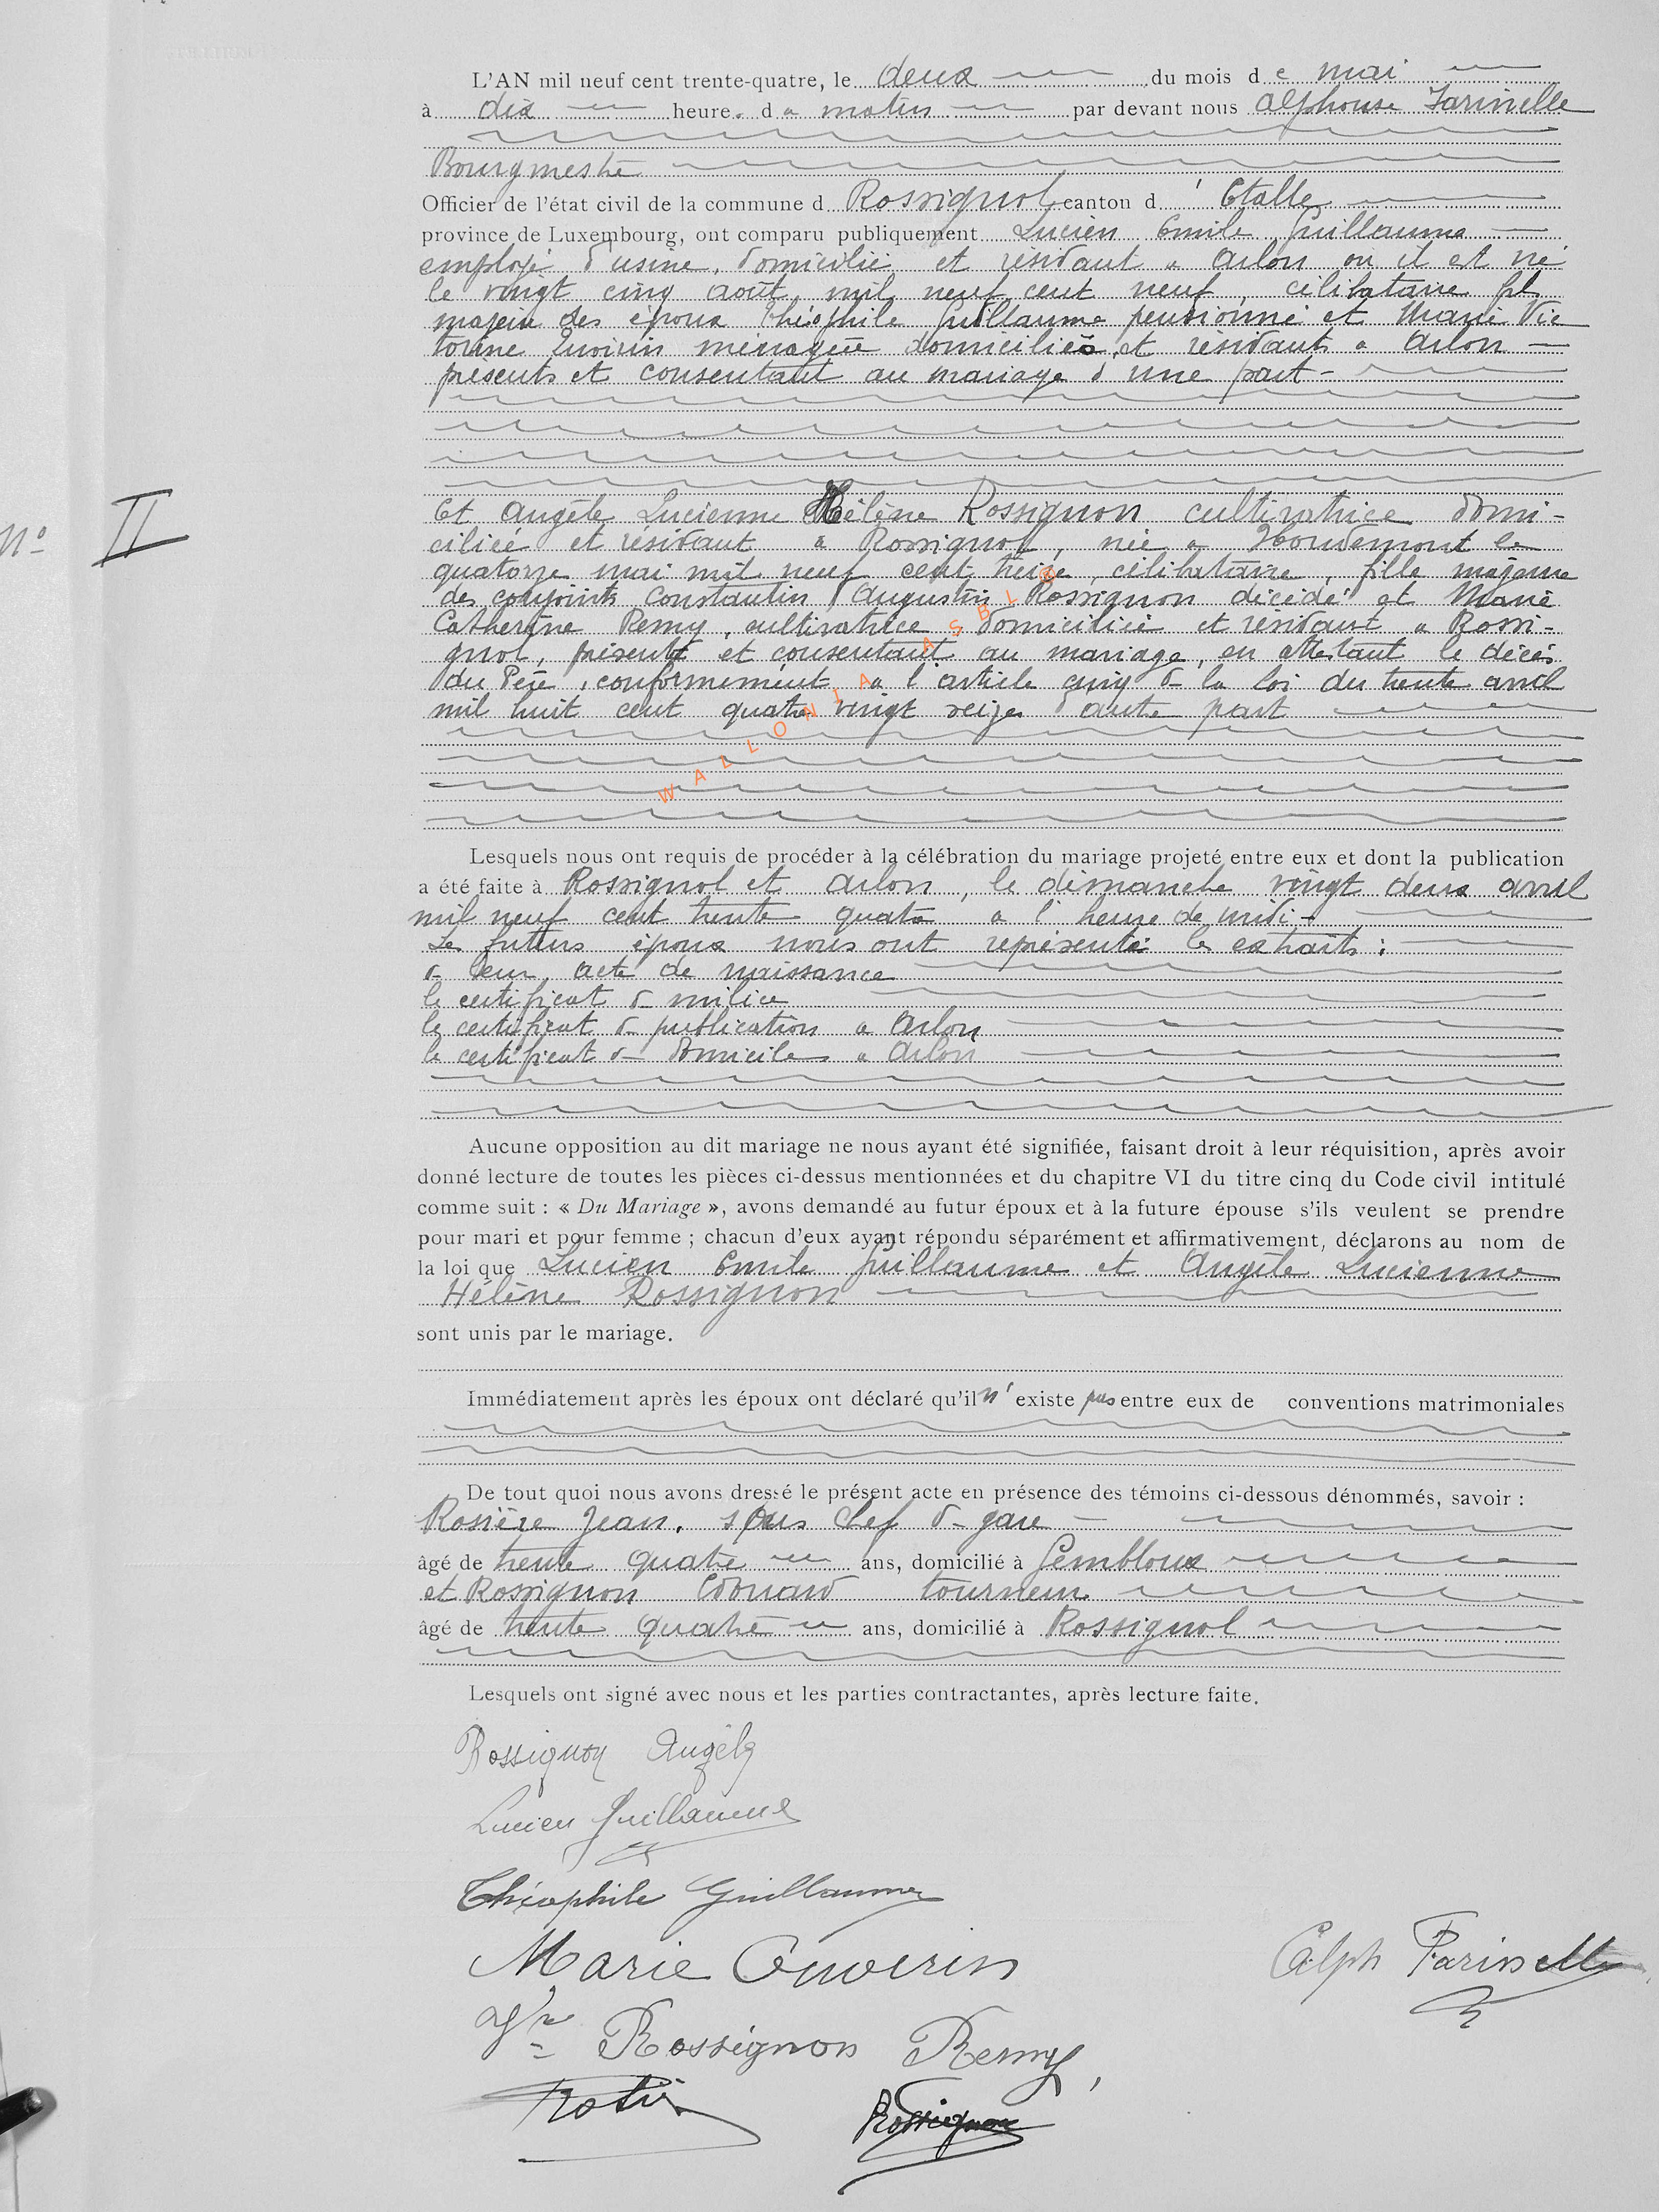 L'AN mil neuf cent trente-quatre, le deux du mois de mai
à dix heure. du matin par devant nous Alphonse Farinelle
Bourgmestre
Officier de l'état civil de la commune d Rossignol canton d' Etalle
province de Luxembourg, ont comparu publiquement Lucien Emile Guillaume
employé d'usine, domicilié et résidant à Arlon ou il est né
le vingt cinq août mil neuf cent neuf, célibataire fils
majeur des époux Théophile Guillaume pensionné et Marie Vic
torine ménagère domiciliés et résidants à Arlon
présents et consentant au mariage d'une part-
N° II
Et Angèle Lucienne Hélène Rossignon cultivatrice domi-
ciliée et résidant à Rossignol, née à Houdemont le
quatorze mai mil neuf cent treize, célibataire, fille majeure
des conjoints Constantin Augustin Rossignon décédé et Marie
Catherine Remy, cultivatrice domiciliée et résidant à Rossi-
gnol, présente et consentant au mariage, en attestant le décès
du Père, conformement à l'article cinq de la loi du trente avril
mil huit cent quatre vingt seize d'autre part
WALLONIA ASBL ©
Lesquels nous ont requis de procéder à la célébration du mariage projeté entre eux et dont la publication
a été faite à Rossignol et Arlon, le dimanche vingt deux avril
mil neuf cent trente quatre à l'heure de midi-
Les futurs époux nous ont représenté les extraits :
de leur acte de naissance
le certificat de milice
le certificat de publication à Arlon
le certificat de domicile à Arlon
Aucune opposition au dit mariage ne nous ayant été signifiée, faisant droit à leur réquisition, après avoir
donné lecture de toutes les pièces ci-dessus mentionnées et du chapitre VI du titre cinq du Code civil intitulé
comme suit : « Du Mariage », avons demandé au futur époux et à la future épouse s'ils veulent se prendre
pour mari et pour femme ; chacun d'eux ayant répondu séparément et affirmativement, déclarons au nom de
la loi que Lucien Emile Guillaume et Angèle Lucienne
Hélène Rossignon
sont unis par le mariage.
Immédiatement après les époux ont déclaré qu'il n'existe pas entre eux de conventions matrimoniales
De tout quoi nous avons dressé le présent acte en présence des témoins ci-dessous dénommés, savoir :
Rosière Jean, sous chef de gare
âgé de trente quatre ans, domicilié à Gembloux
et Rossignon Edouard tourneur
âgé de trente quatre ans, domicilié à Rossignol
Lesquels ont signé avec nous et les parties contractantes, après lecture faite.
Rossignon Angèle
Lucien Guillaume
Théophile Guillaume
Marie
Alph Farinelle
Vve Rossignon Remy,
Rossignon